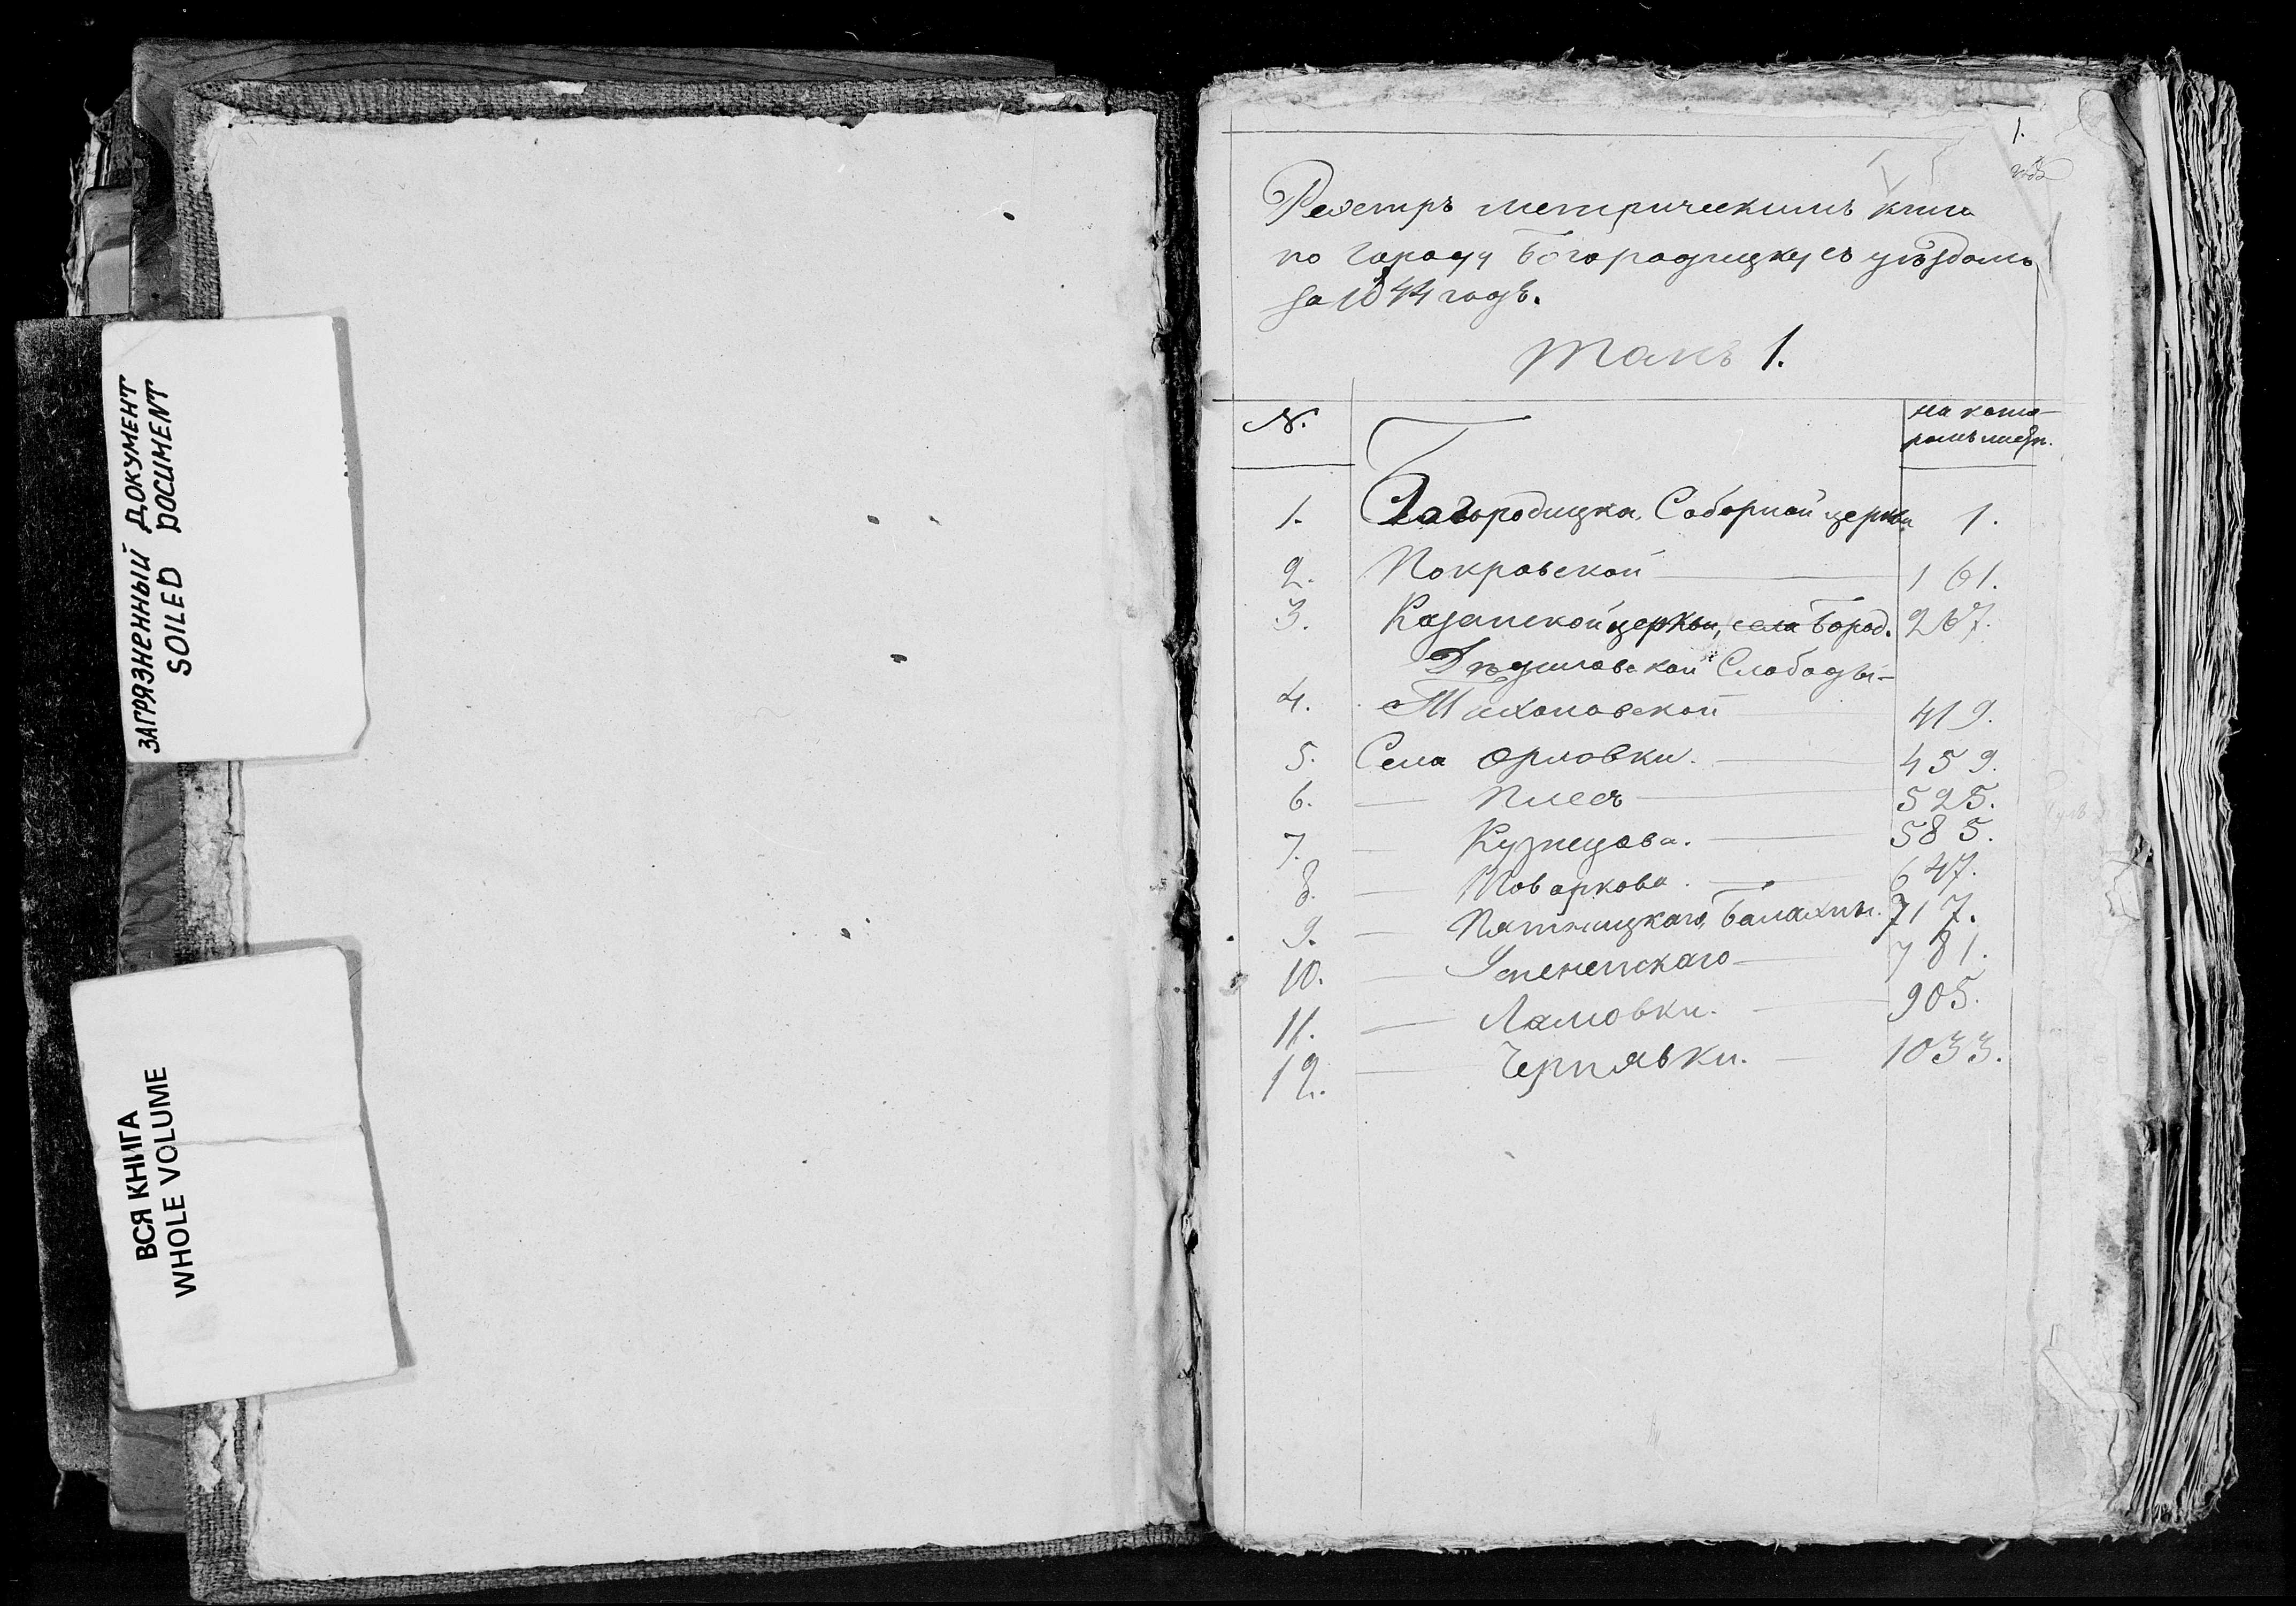 ЗАГРЯЗНЕННЫЙ ДОКУМЕНТ
SOILED DOCUMENT
ВСЯ КНИГА
WHOLE VOLUME
1.
Реэстръ метрическимъ книга
по городу Богородицку съ уѣздомъ
за 1844 годъ.
Томъ 1.
№.
на кото-
ромъ листѣ.
1. Богородицка, Соборной церкви 1.
2. Покровской 161.
3. Казанской церкви, села Город. 267.
Дѣдиловской Слободы-
4. Тихоновской 419.
5. Села Орловки. 459.
6. — Іевлева 525.
7. — Кузнецова. 585.
8. — Товаркова. 647.
9. — Пятницкаго, Балахны. 717.
10. — Успенскаго 781.
11. — Ламовки. 905.
12. — Чернявки. 1033.